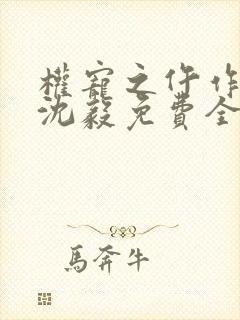 權寵之仵作
沈毅免費全
馬奔牛